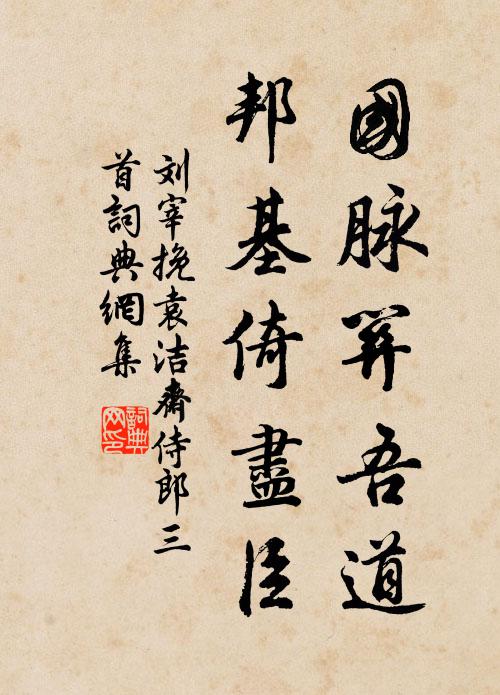 國脉關吾道
邦基倚盡臣
刘宰挽袁洁齋侍郎三
首詞典網集
詞典
网印